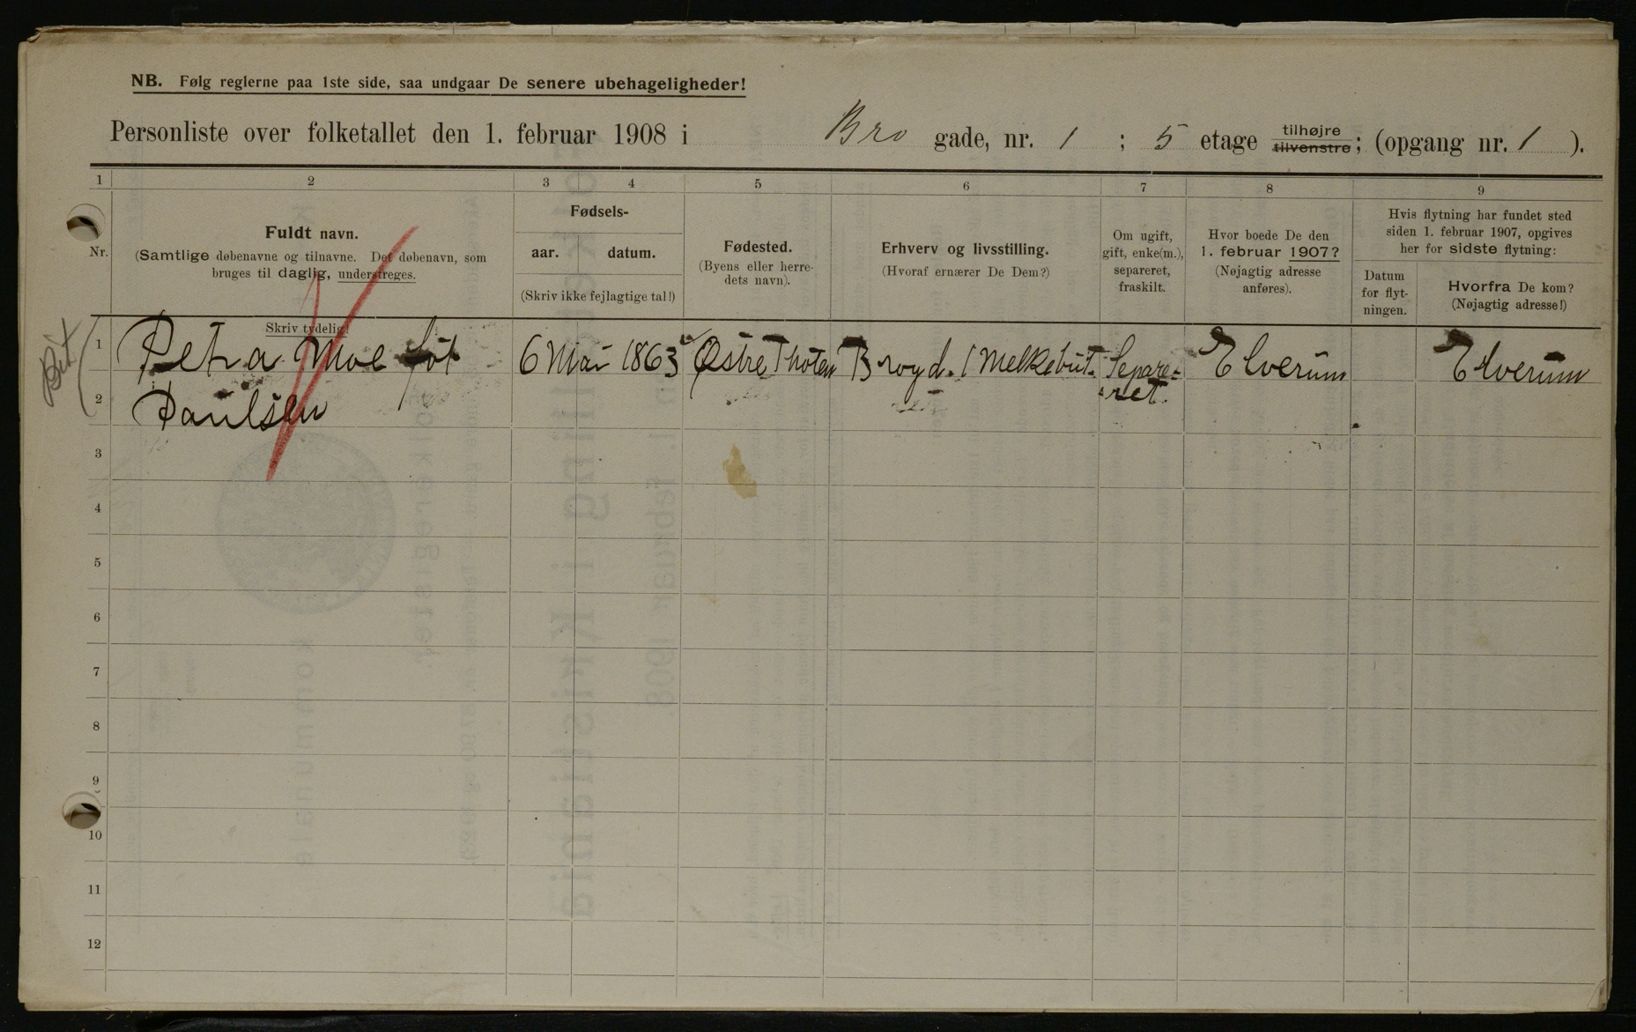 NB. Følg reglerne paa 1ste side, saa undgaar De senere ubehageligheder!
Personliste over folketallet den 1. februar 1908 i Bro gade, nr. 1 ; 5 etage tilhøjre tilvenstre; (opgang nr. 1 ).
1 2 3 4 5 6 7 8 9
Nr.
Fuldt navn.
(Samtlige døbenavne og tilnavne. Det døbenavn, som
bruges til daglig, understreges.
Skriv tydelig!
Fødsels-
aar. datum.
(Skriv ikke fejlagtige tal!)
Fødested.
(Byens eller herre-
dets navn).
Erhverv og livsstilling.
(Hvoraf ernærer De Dem?)
Om ugift,
gift, enke(m.),
separeret,
fraskilt.
Hvor boede De den
1. februar 1907?
(Nøjagtig adresse
anføres).
Hvis flytning har fundet sted
siden 1. februar 1907, opgives
her for sidste flytning:
Datum
for flyt-
ningen.
Hvorfra De kom?
(Nøjagtig adresse!)
1 Petra Moe føt 6 Mai 1863 Østre Thoten Brogd. 1 Melkebut. Separe- Elverum Elverum
2 Paulsen ret.
3
4
5
6
7
8
9
10
11
12